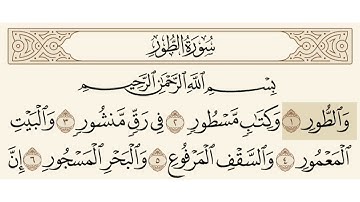 سُورَةُ الطُّورِ
بِسْمِ اللَّهِ الرَّحْمَٰنِ الرَّحِيمِ
وَالطُّورِ ١ وَكِتَابٍ مَسْطُورٍ ٢ فِي رَقٍّ مَنْشُورٍ ٣ وَالْبَيْتِ
الْمَعْمُورِ ٤ وَالسَّقْفِ الْمَرْفُوعِ ٥ وَالْبَحْرِ الْمَسْجُورِ ٦ إِنَّ